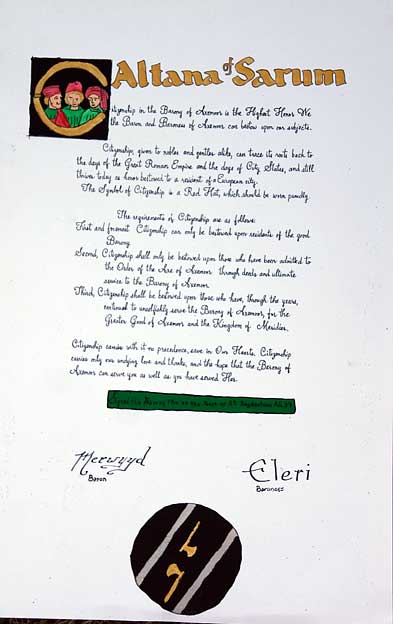 Altana of Sarum
Citizenship in the Barony of Axemoor is the Highest Honor We
the Baron and Baroness of Axemoor can bestow upon our subjects.
Citizenship, given to nobles and gentles alike, can trace its roots back to
the days of the Great Roman Empire and the days of City States, and still
thrives today as honor bestowed to a resident of a European city.
The Symbol of Citizenship is a Red Hat, which should be worn proudly.
The requirements of Citizenship are as follows:
First and foremost Citizenship can only be bestowed upon residents of the good
Barony.
Second, Citizenship shall only be bestowed upon those who have been admitted to
the Order of the Axe of Axemoor through deeds and ultimate
service to the Barony of Axemoor.
Third, Citizenship shall be bestowed upon those who have, through the years,
continued to unselfishly serve the Barony of Axemoor, for the
Greater Good of Axemoor and the Kingdom of Meridies.
Citizenship carries with it no precedence, save in Our Hearts. Citizenship
carries only our undying love and thanks, and the hope that the Barony of
Axemoor can serve you as well as you have served Her.
Merwyyd
Eleri
Baron
Baroness